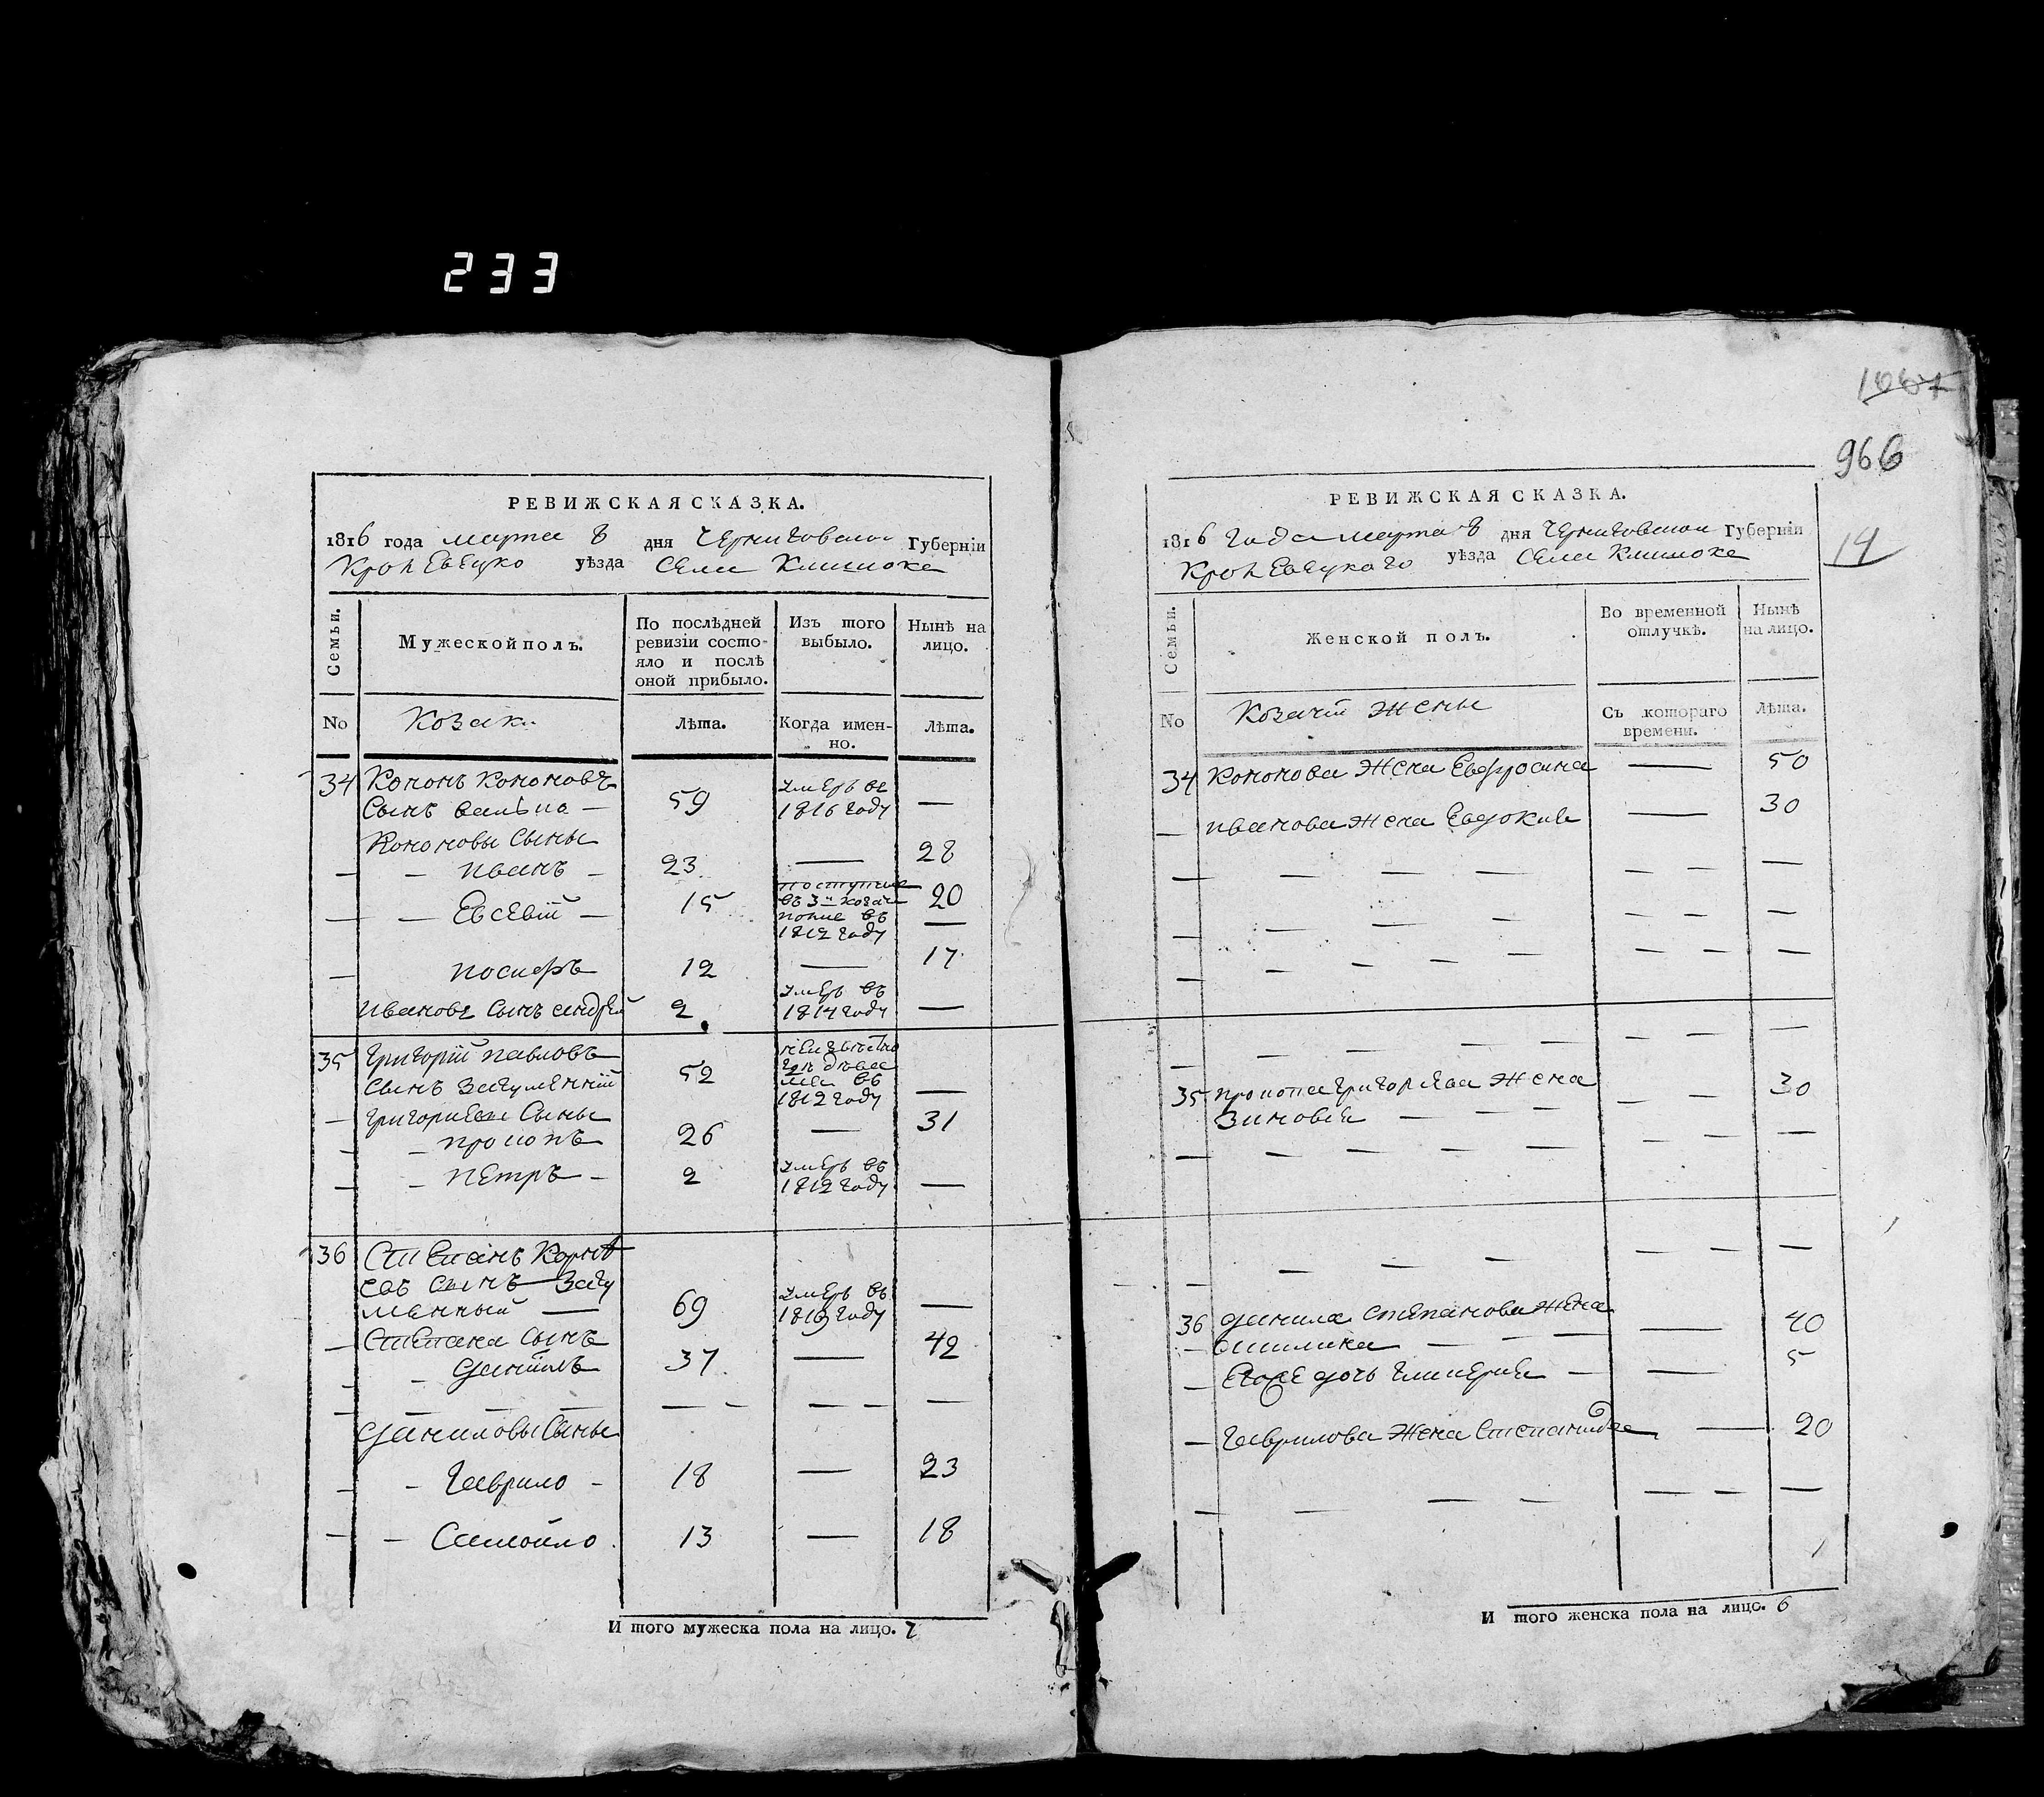 233
1007
966
14
РЕВИЖСКАЯ СКАЗКА.
1816 года марта 8 дня Черниговской Губерніи
Кролевецко уѣзда Села Клишокъ
Семьи.
Мужеской полъ.
По послѣдней ревизіи состо-
яло и послѣ
оной прибыло.
Изъ того
выбыло.
Нынѣ на
лицо.
No
Козаки
Лѣта.
Когда имен-
но.
Лѣта.
34 Кононъ Кононовъ
Сынъ 59 умеръ въ
1816 году —
Кононовы Сыны
— — Иванъ — 23 — 28
— — Евсевій — 15 поступил
въ 3й козач
полкъ въ
1812 году 20
—
— Иосифъ 12 — 17
Ивановъ Сынъ Андрей 2 умеръ въ
1814 году —
35 Григорій Павловъ
Сынъ Загуменній 52
1812 году —
— Григориевы Сыны
— — Прокопъ 26 — 31
— — Петръ — 2 умеръ въ
1812 году —
36 Степанъ Корнѣ
евъ Сынъ Загу
менный — 69 умеръ въ
1813 году —
— Степана Сынъ
— — Даніилъ 37 — 42
— — — — — — — — —
Даниловы Сыны
— — Гаврило — 18 — 23
— — Самойло 13 — 18
И того мужеска пола на лицо. 7
РЕВИЖСКАЯ СКАЗКА.
1816 года марта 8 дня Черниговской Губерніи
Кролевецкаго уѣзда Села Клишокъ
Семьи.
Женской полъ.
Во временной
отлучкѣ.
Нынѣ
на лицо.
No
Козачіи жены
Съ котораго
времени.
Лѣта.
34 Кононова жена Евфросина — 50
— Иванова жена Евдокия — 30
— — — — — — —
— — — — — —
— — — — — — — —
— — — — — — — —
35 Прокопа Григориева жена
Зиновия — — — — — 30
— — — — — — — —
— — — — — — —
36 Данила Степанова жена
— — — — — 40
— Егоже дочь Гликерия — — 5
— Гаврилова жена Степанида — 20
— — — — — — —
И того женска пола на лицо. 6